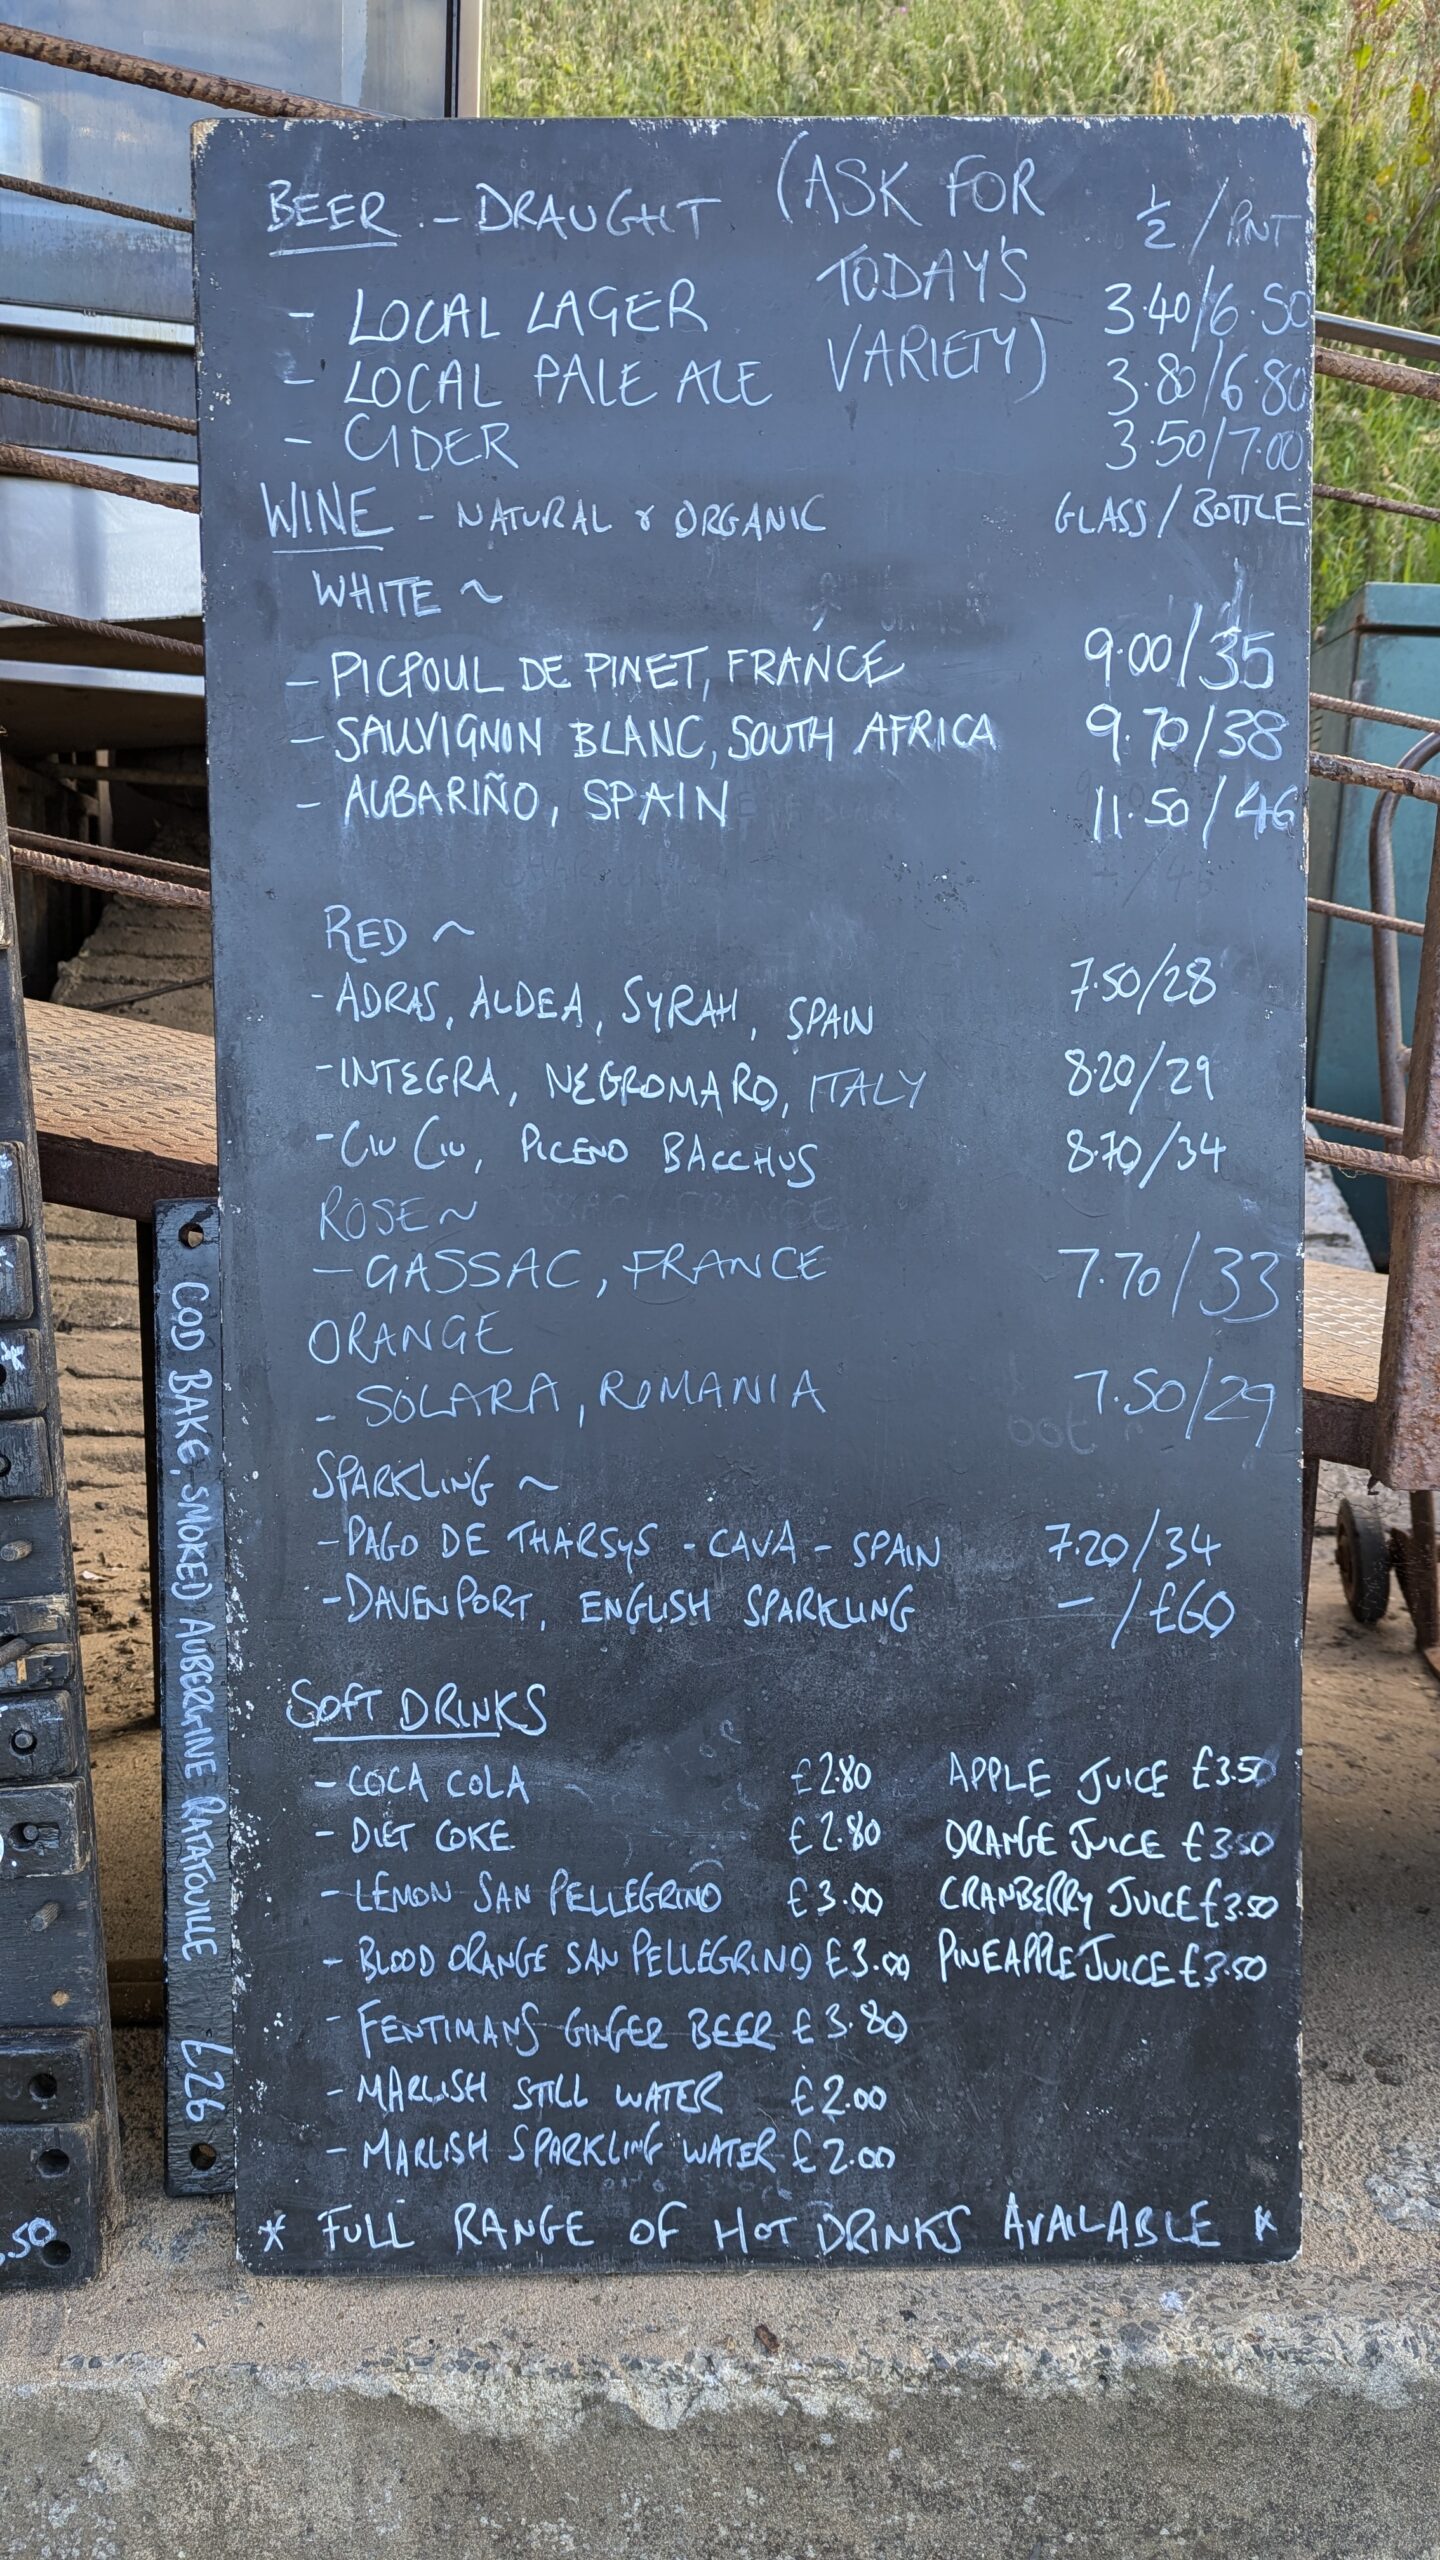 BEER - DRAUGHT (ASK FOR TODAY'S VARIETY) ½ / PINT
- LOCAL LAGER 3.40/6.50
- LOCAL PALE ALE 3.80/6.80
- CIDER 3.50/7.00
WINE - NATURAL & ORGANIC GLASS / BOTTLE
WHITE ~
- PICPOUL DE PINET, FRANCE 9.00/35
- SAUVIGNON BLANC, SOUTH AFRICA 9.70/38
- ALBARIÑO, SPAIN 11.50/46
RED ~
- ADRAS, ALDEA, SYRAH, SPAIN 7.50/28
- INTEGRA, NEGROMARO, ITALY 8.20/29
- CIU CIU, PICENO BACCHUS 8.70/34
ROSE ~
- GASSAC, FRANCE 7.70/33
ORANGE
- SOLARA, ROMANIA 7.50/29
SPARKLING ~
- PAGO DE THARSYS - CAVA - SPAIN 7.20/34
- DAVENPORT, ENGLISH SPARKLING - / £60
SOFT DRINKS
- COCA COLA £2.80 APPLE JUICE £3.50
- DIET COKE £2.80 ORANGE JUICE £3.50
- LEMON SAN PELLEGRINO £3.00 CRANBERRY JUICE £3.50
- BLOOD ORANGE SAN PELLEGRINO £3.00 PINEAPPLE JUICE £3.50
- FENTIMANS GINGER BEER £3.80
- MARLISH STILL WATER £2.00
- MARLISH SPARKLING WATER £2.00
* FULL RANGE OF HOT DRINKS AVAILABLE *
COD BAKE, SMOKED AUBERGINE RATATOUILLE £26
.50